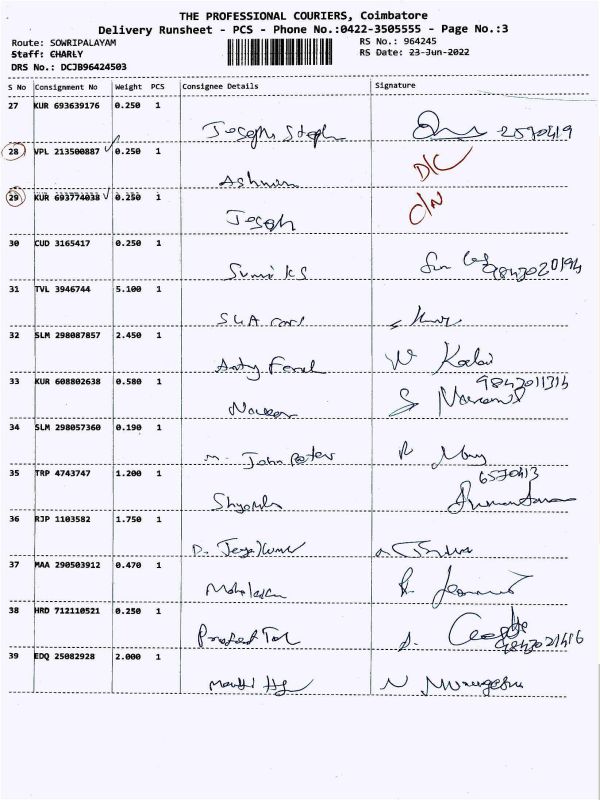 THE PROFESSIONAL COURIERS, Coimbatore
Delivery Runsheet - PCS - Phone No.:0422-3505555 - Page No.:3
Route: SOWRIPALAYAM
RS No.: 964245
Staff: CHARLY
RS Date: 23-Jun-2022
DRS No.: DCJB96424503
S No Consignment No Weight PCS Consignee Details Signature
27 KUR 693639176 0.250 1
Joseph Steph 2570419
28 VPL 213500887 0.250 1
D/C
Ashwin
29 KUR 693774038 0.250 1
Joseph
30 CUD 3165417 0.250 1
Sumi KS 9843020194
31 TVL 3946744 5.100 1
32 SLM 298087857 2.450 1
33 KUR 608802638 0.580 1
9843011314
Naveen
34 SLM 298057360 0.190 1
M. John Peter R Mary
35 TRP 4743747 1.200 1
6570413
36 RJP 1103582 1.750 1
D. Jeyakumar
37 MAA 290503912 0.470 1
38 HRD 712110521 0.250 1
9843021416
39 EDQ 25082928 2.000 1
N Murugesh